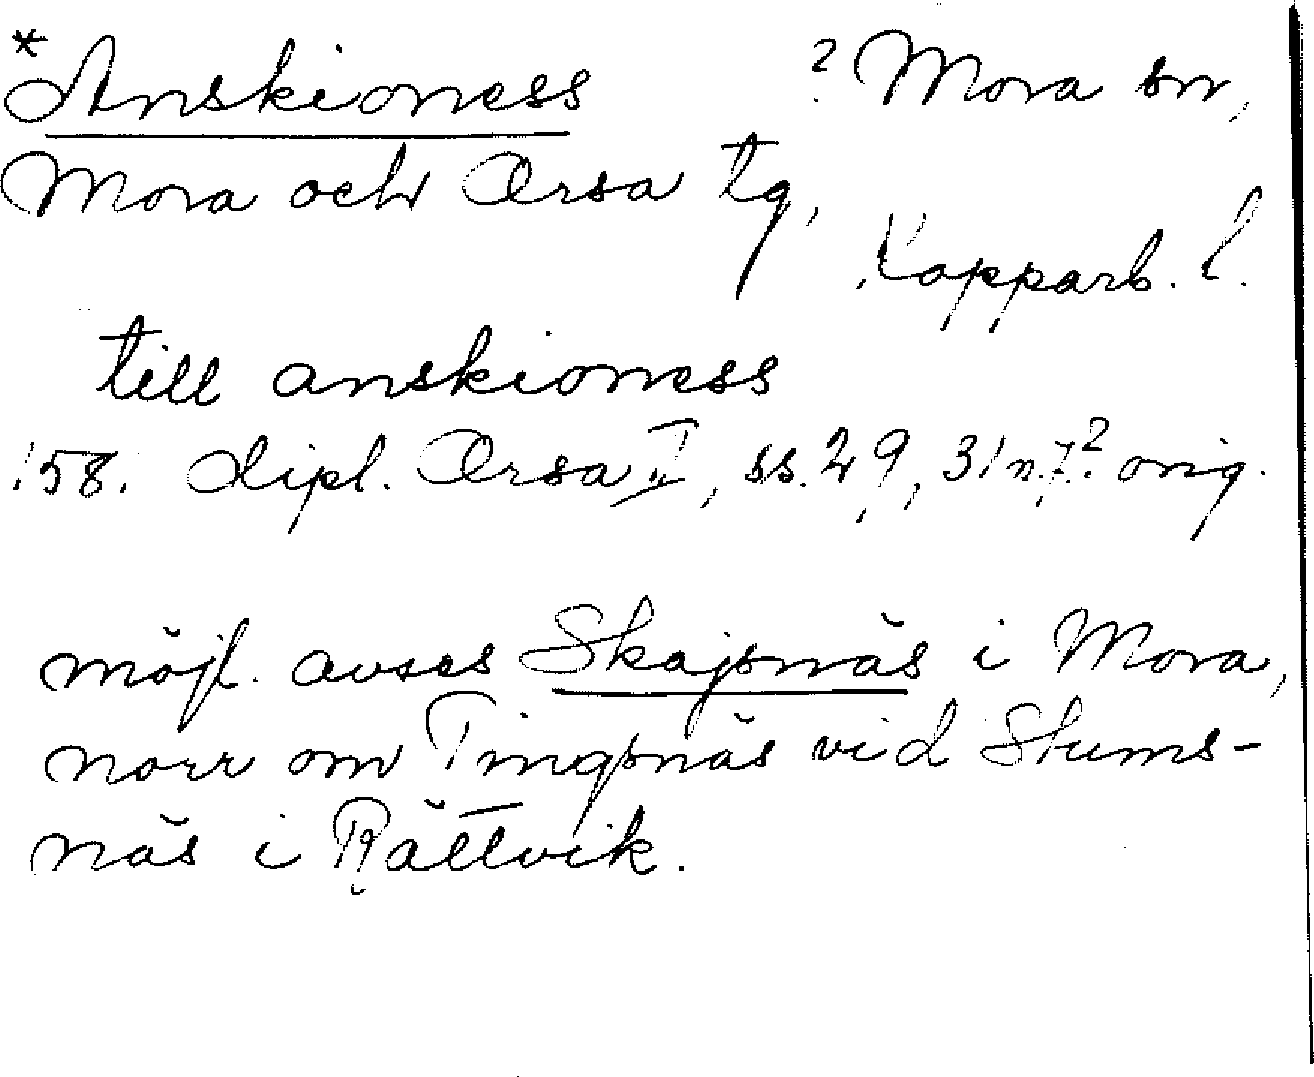 *Anskioness ? Mora sn,
Mora och Orsa tg,
Kopparb. l.
till anskioness
158. dipl. Orsa II, ss. 29, 31 n. 7.² orig.
möjl. avses Skajsnäs i Mora,
norr om Tingsnäs vid Stums-
näs i Rättvik.